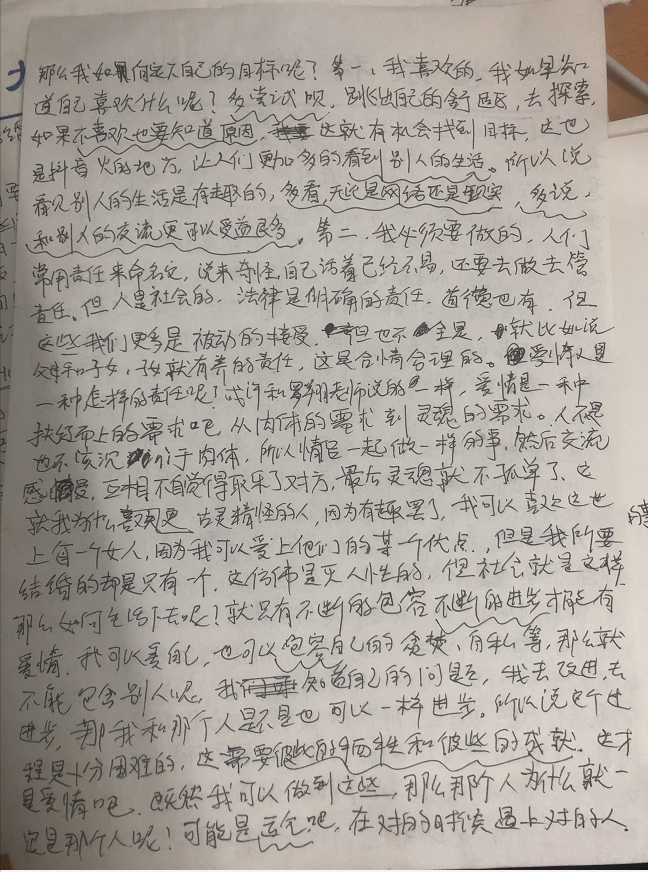 那么我如何定下自己的目标呢？第一、我喜欢的。我如果知
道自己喜欢什么呢？多尝试呗，跳出自己的舒适区，去探索，
如果不喜欢也要知道原因，这就有机会找到目标，这也
是抖音火的地方，让人们更加多的看到别人的生活。所以说
看见别人的生活是有趣的，多看，无论是网络还是现实，多说，
和别人的交流更可以受益良多。第二、我必须要做的，人们
常用责任来命名它，说来奇怪自己活着已经不易，还要去做去管
责任。但人是社会的，法律是明确的责任，道德也有，但
这些我们更多是被动的接受，但也不全是，就比如说
父母和子女，子女就有养的责任，这是合情合理的。爱情又是
一种怎样的责任呢？或许和罗翔老师说的一样，爱情是一种
技能上的需求吧，从肉体的需求到灵魂的需求。人不是
也不该沉于肉体，所以情侣一起做一样的事，然后交流
感受，互相不自觉得取乐了对方，最后灵魂就不孤单了，这
就我为什么喜欢更古灵精怪的人，因为有趣罢了，我可以喜欢这世
上每一个女人，因为我可以爱上他们的某个优点，但是我所要
结婚的却是只有一个，这仿佛是灭人性的，但社会就是这样
那么如何生活下去呢？就只有不断的包容不断的进步才能有
爱情，我可以爱自己，也可以包容自己的贪婪、自私等，那么就
不能包容别人呢，我知道自己的问题，我去改进，去
进步，那我和那个人是不是也可以一样进步。所以说这个过
程是十分困难的，这需要彼此的牺牲和彼此的成就，这才
是爱情吧，既然我可以做到这些，那么那个人为什么就一
定是那个人呢！可能是这个吧，在对的时候遇上对的人。